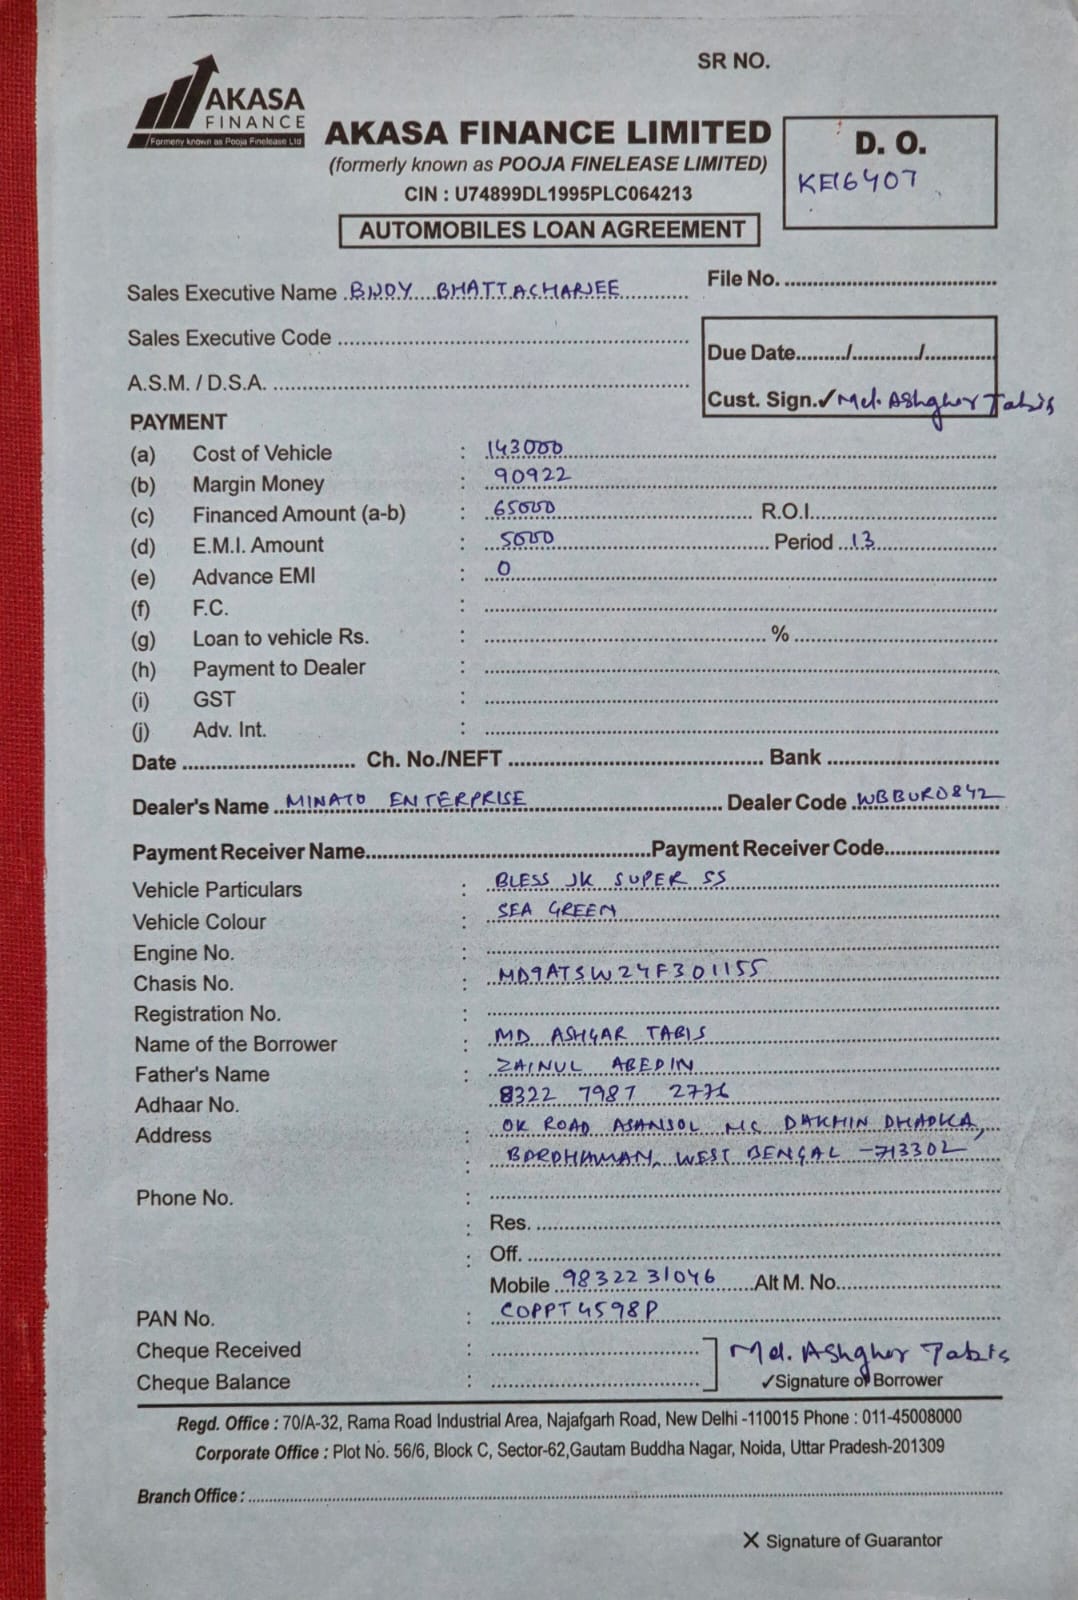 SR NO.
AKASA
FINANCE
Formerly known as Pooja Finelease Ltd
AKASA FINANCE LIMITED
(formerly known as POOJA FINELEASE LIMITED)
CIN : U74899DL1995PLC064213
AUTOMOBILES LOAN AGREEMENT
D. O.
KE16407
Sales Executive Name BIJOY BHATTACHARJEE
File No.
Sales Executive Code
A.S.M. / D.S.A.
Due Date........./............/............
Cust. Sign.✓ Md. Ashgher Tabis
PAYMENT
(a) Cost of Vehicle : 143000
(b) Margin Money : 90922
(c) Financed Amount (a-b) : 65000 R.O.I.
(d) E.M.I. Amount : 5000 Period 13
(e) Advance EMI : 0
(f) F.C. :
(g) Loan to vehicle Rs. : %
(h) Payment to Dealer :
(i) GST :
(j) Adv. Int. :
Date Ch. No./NEFT Bank
Dealer's Name MINATO ENTERPRISE Dealer Code WBBUR0842
Payment Receiver Name Payment Receiver Code
Vehicle Particulars : BLESS JK SUPER SS
Vehicle Colour : SEA GREEN
Engine No. :
Chasis No. : MD9ATSW24F301155
Registration No. :
Name of the Borrower : MD ASHGAR TABIS
Father's Name : ZAINUL ABEDIN
Adhaar No. : 8322 7987 2776
Address : OK ROAD ASANSOL MC DAKHIN DHADKA,
: BARDHAMAN, WEST BENGAL -713302
Phone No. :
: Res.
: Off.
Mobile 9832231046 Alt M. No.
PAN No. : COPPT4598P
Cheque Received :
Md. Ashgher Tabis
Cheque Balance : ✓Signature of Borrower
Regd. Office : 70/A-32, Rama Road Industrial Area, Najafgarh Road, New Delhi -110015 Phone : 011-45008000
Corporate Office : Plot No. 56/6, Block C, Sector-62,Gautam Buddha Nagar, Noida, Uttar Pradesh-201309
Branch Office :
X Signature of Guarantor